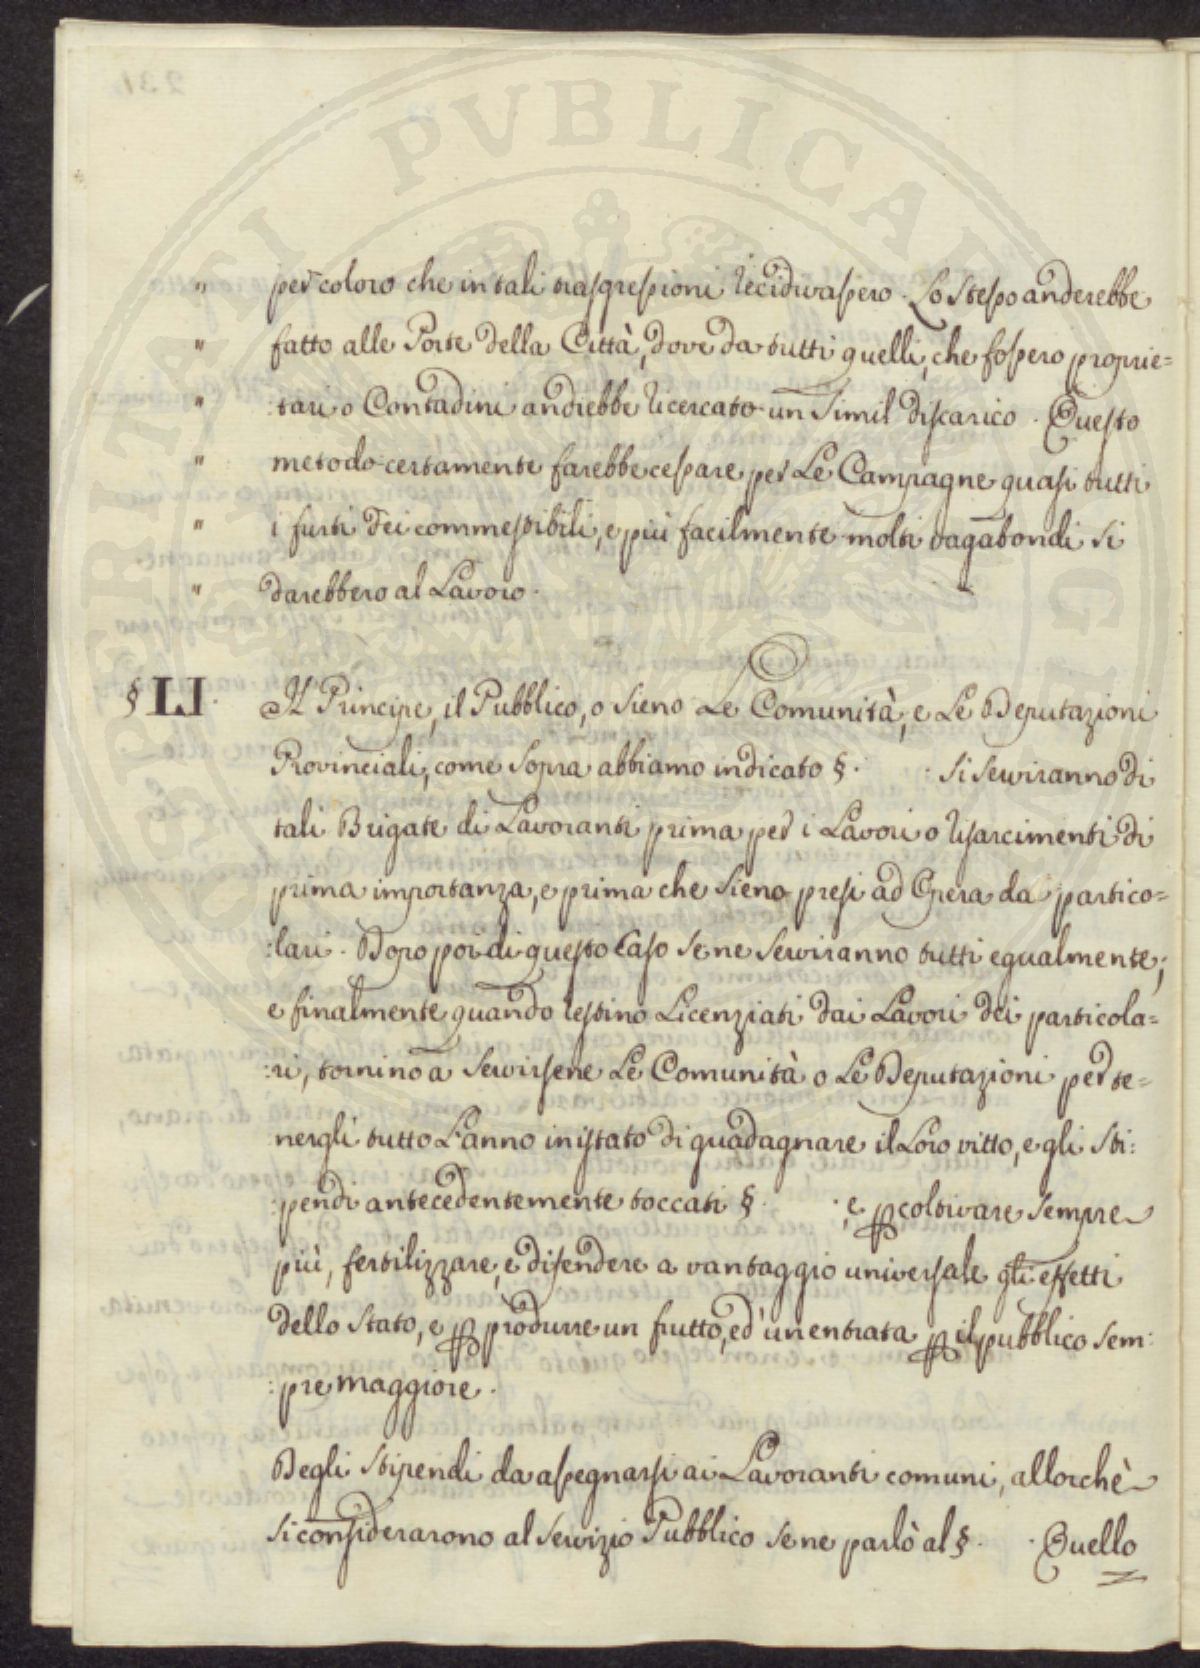 PROSPERITATI PVBLICAE AVGENDAE
" per coloro che in tali trasgressioni recidivassero. Lo stesso anderebbe
" fatto alle Porte della Città, dove da tutti quelli, che fossero proprie=
" tari o Contadini andrebbe ricercato un simil discarico. Questo
" metodo certamente farebbe cessare per Le Campagne quasi tutti
" i furti dei commestibili, e più facilmente molti vagabondi si
" darebbero al Lavoro.
§ LI. Il Principe, il Pubblico, o sieno Le Comunità, e Le Deputazioni
Provinciali, come sopra abbiamo indicato §. . si serviranno di
tali Brigate di Lavoranti prima per i Lavori o risarcimenti di
prima importanza, e prima che sieno presi ad Opera da partico=
:lari. Dopo poi di questo Caso se ne serviranno tutti egualmente;
e finalmente quando restino Licenziati dai Lavori dei particola=
:ri, tornino a servirsene Le Comunità o Le Deputazioni per te=
nergli tutto L'anno in istato di guadagnare il Loro vitto, e gli sti:
:pendi antecedentemente toccati §. . , e p coltivare sempre
più, fertilizzare, e difendere a vantaggio universale gli effetti
dello Stato, e p produrre un frutto, ed un entrata p il pubblico sem:
:pre maggiore.
Degli stipendi da assegnarsi ai Lavoranti comuni, allorchè
si considerarono al servizio Pubblico se ne parlò al §. . Quello